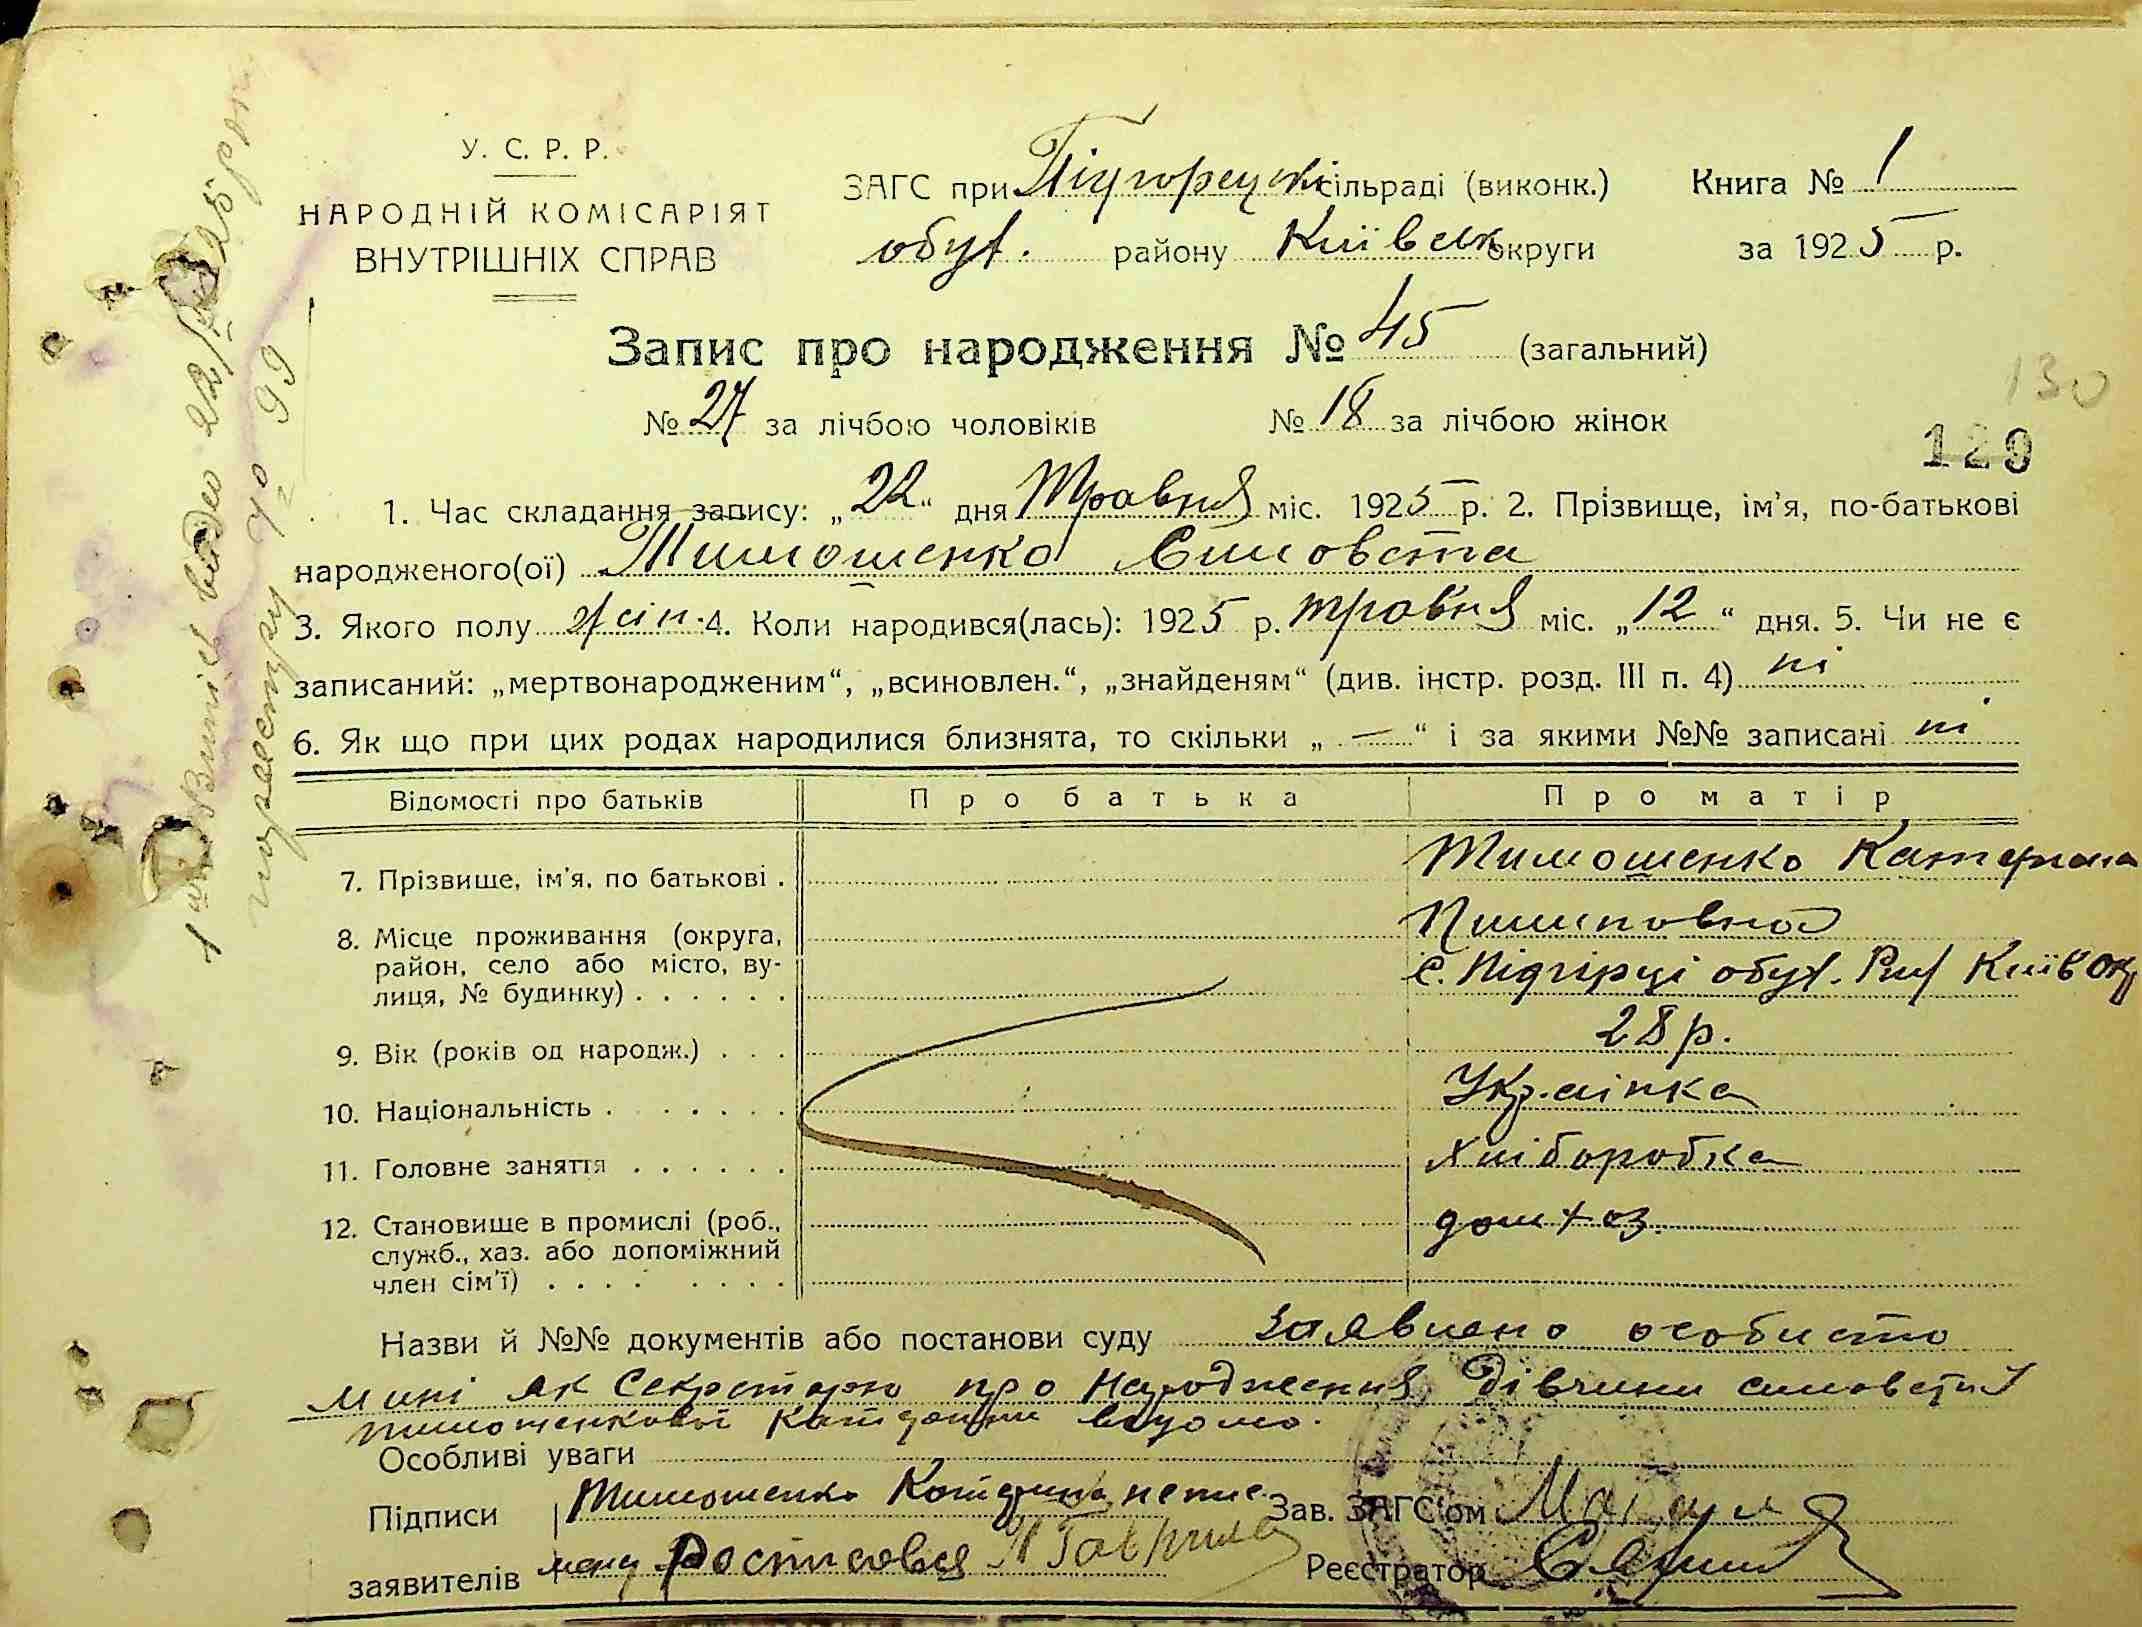 У. С. Р. Р.
НАРОДНІЙ КОМІСАРІЯТ
ВНУТРІШНІХ СПРАВ
ЗАГС при Підгорецькі сільраді (виконк.) Книга № 1
обух. району Київськ округи за 1925 р.
Запис про народження № 45 (загальний)
№ 27 за лічбою чоловіків № 18 за лічбою жінок
130
129
1. Час складання запису: „22“ дня Травня міс. 1925 р. 2. Прізвище, ім'я, по-батькові
народженого(ої) Тимошенко Єлисовета
3. Якого полу жін. 4. Коли народився(лась): 1925 р. травня міс. „12“ дня. 5. Чи не є
записаний: „мертвонародженим“, „всиновлен.“, „знайденям“ (див. інстр. розд. III п. 4) ні
6. Як що при цих родах народилися близнята, то скільки „—“ і за якими №№ записані ні
Відомості про батьків Про батька Про матір
7. Прізвище, ім'я, по батькові . Тимошенко Катерина
Пилиповна
8. Місце проживання (округа,
район, село або місто, ву-
лиця, № будинку) . . . . . . с. Підгірці обух. Київ окр
9. Вік (років од народж.) . . . 28 р.
10. Національність . . . . . . Українка
11. Головне заняття . . . . . . хліборобка
12. Становище в промислі (роб.,
служб., хаз. або допоміжний
член сім'ї) . . . . . . . . дом хоз.
Назви й №№ документів або постанови суду заявлено особисто
мині як Секретарю про Народження Дівчини
тимошенкової Катерини
Особливі уваги
Підписи Тимошенко Катерина непис. Зав. ЗАГС'ом
заявителів Реєстратор